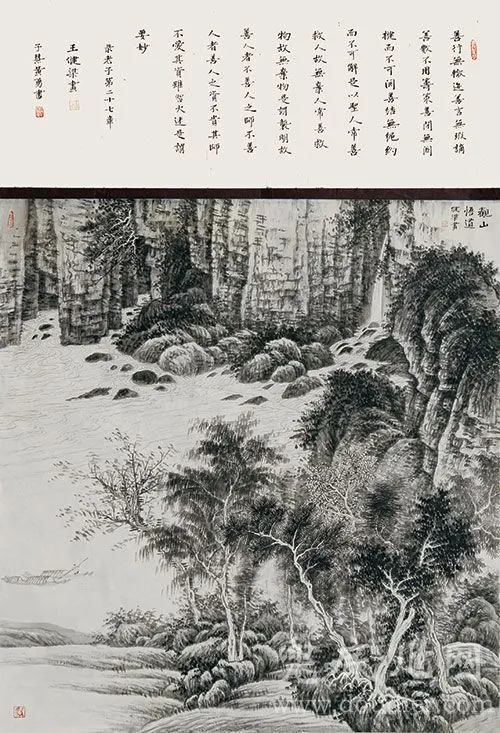 善行無轍迹善言無瑕謫
善數不用籌策善閉無關
楗而不可開善結無繩約
而不可解是以聖人常善
救人故無棄人常善救
物故無棄物是謂襲明故
善人者不善人之師不善
人者善人之資不貴其師
不愛其資雖智大迷是謂
要妙
录老子第二十七章
王健梁畫
黄勇書
觀山
悟道
健梁畫